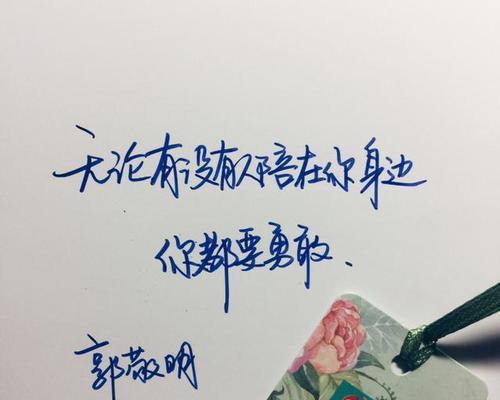 无论有没有人陪在你身边
你都要勇敢.
郭敬明